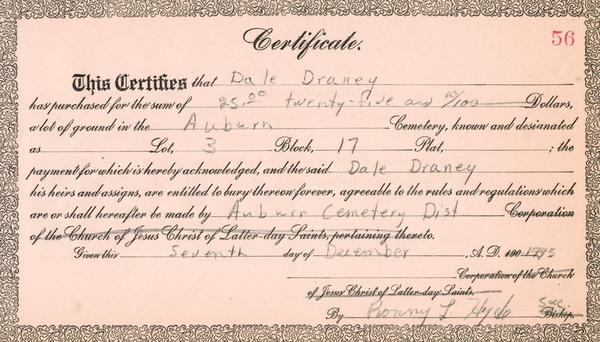 56
Certificate.
This Certifies that Dale Draney
has purchased for the sum of 25.00 twenty-five and 00/100 Dollars,
a lot of ground in the Auburn Cemetery, known and designated
as Lot, 3 Block, 17 Plat, ; the
payment for which is hereby acknowledged, and the said Dale Draney
his heirs and assigns, are entitled to bury thereon forever, agreeable to the rules and regulations which
are or shall hereafter be made by Auburn Cemetery Dist Corporation
of the Church of Jesus Christ of Latter-day Saints, pertaining thereto.
Given this Seventh day of December, A.D. 190 1993
Corporation of the Church
of Jesus Christ of Latter-day Saints.
By Ronny L Hyde Sec. Bishop.